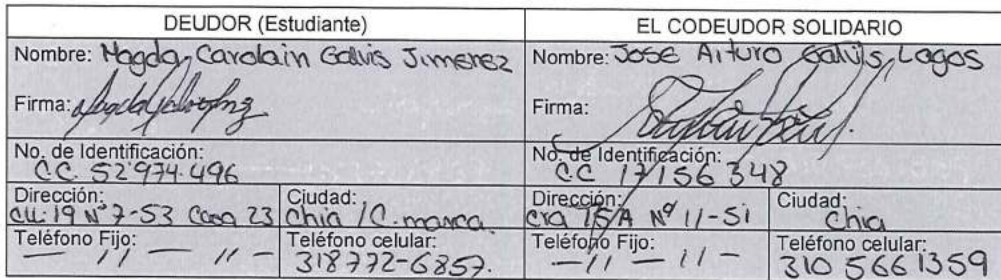 DEUDOR (Estudiante)
EL CODEUDOR SOLIDARIO
Nombre: Magda Carolain Galvis Jimenez
Nombre: Jose Arturo Galvis Lagos
Firma:
Firma:
No. de Identificación:
CC 52'974.496
No. de Identificación:
CC 17156348
Dirección:
CLL 19 N° 7-53 Casa 23
Ciudad:
Chia / C. marca.
Dirección:
cra 15A Nº 11-51
Ciudad:
Chia
Teléfono Fijo:
— 11 — 11 —
Teléfono celular:
318772-6857.
Teléfono Fijo:
— 11 — 11 —
Teléfono celular:
310 566 1359